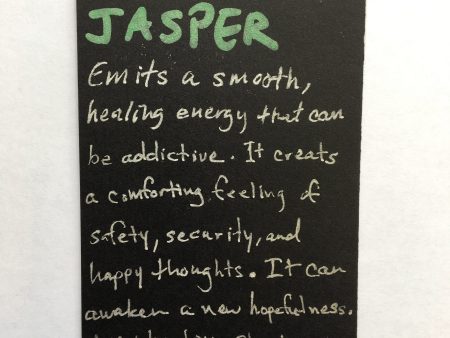 JASPER
Emits a smooth,
healing energy that can
be addictive. It creats
a comforting feeling of
safety, security, and
happy thoughts. It can
awaken a new hopefulness.